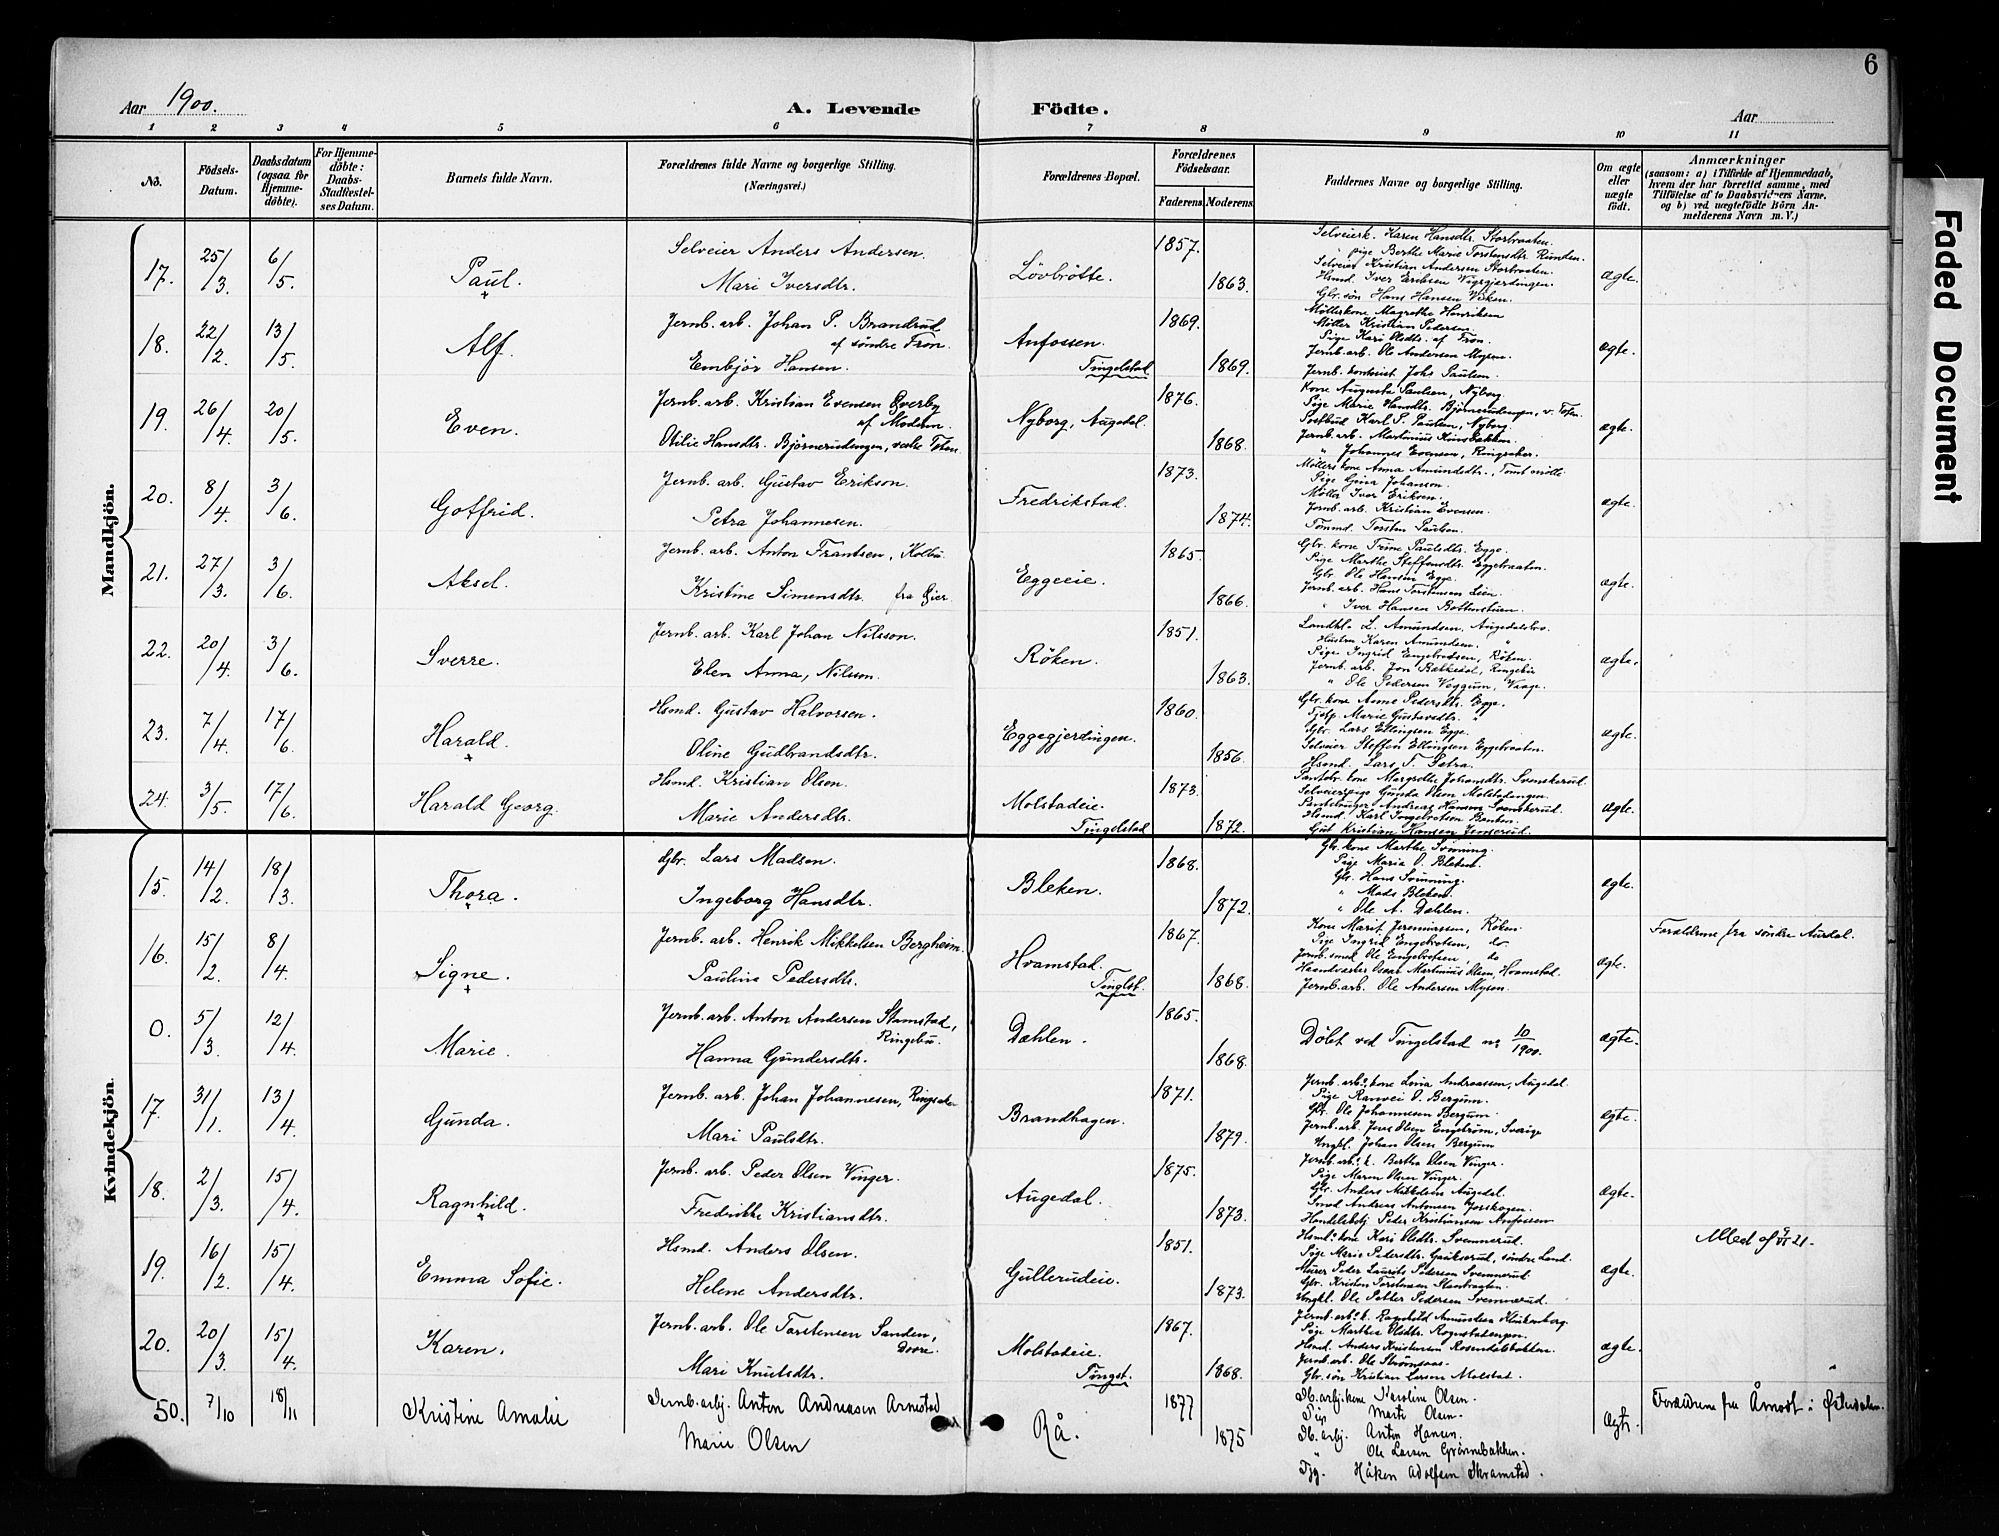 6
Aar 1900.
A. Levende Födte.
Aar
1 2 3 4 5 6 7 8 9 10 11
No.
Födsels-Datum.
Daabsdatum (ogsaa for Hjemmedöbte).
For Hjemmedöbte: Daabs-Stadfestelses Datum.
Barnets fulde Navn.
Forældrenes fulde Navne og borgerlige Stilling. (Næringsvei.)
Forældrenes Bopæl.
Forældrenes Födselsaar.
Faderens. Moderens.
Faddernes Navne og borgerlige Stilling.
Om ægte eller uægte födt.
Anmærkninger
(saasom: a) i Tilfælde af Hjemmedaab, hvem der har forrettet samme, med Tilföielse af to Daabsvidners Navne, og b) ved uægtefödte Börn Anmelderens Navn m. V.)
Faded Document
Mandkjön.
17. 25/3. 6/5. Paul. Selveier Anders Andersen. Løvbråtte. 1857.
Mari Iversdtr. 1863. ægte.
Selveierk. Karen Hansdtr. Storbraaten.
pige Berthe Marie Torstensdtr. Rønden.
Selveier Kristian Andersen Storbraaten.
Hsmd. Iver Eriksen Vigsgjerdingen.
Gbr. søn Hans Hansen Viken.
18. 22/2. 13/5. Alf. Jernb. arb. Johan P. Brandrud af søndre Fron. Anfossen. 1869.
Embjør Hansen. Tingelstad 1869. ægte.
Møllerkone Magrethe Henriksen
Møller Kristian Pedersen.
Pige Kari Olsdtr. af Fron.
Jernb. arb. Ole Andersen Mysen.
Jernb. kontorist Johs Paulsen.
19. 26/4. 20/5. Even. Jernb. arb. Kristian Evensen Øverby af Modum. Nyborg, Augedal. 1876.
Otilie Hansdtr. Bjørnerudengen, vestre Toten. 1868. ægte.
Kone Augusta Paulsen, Nyborg
Pige Marie Hansdtr. Bjørnerudengen, v. Toten.
Postbud Karl P. Paulsen, Nyborg.
Jernb. arb. Martinius
" Johannes Evensen, Ringsaker.
20. 8/4. 3/6. Gotfrid. Jernb. arb. Gustav Erikson. Fredrikstad. 1873.
Petra Johannesen. 1874. ægte.
Møllers kone Anna Amundsdtr., Tomt mølle
Pige Gina Johansen.
Møller Iver Eriksen.
Jernb. arb. Kristian Evensen.
Tømmd. Torsten Paulsen.
21. 27/3. 3/6. Aksel. Jernb. arb. Anton Frantsen, Kolbu. Eggeeie. 1865.
Kristine Simensdtr. fra Gjer. 1866. ægte.
Gbr. kone Trine Paulsdtr. Egge.
Pige Marthe Steffensdtr. Eggebraaten.
Gbr. Ole Hansen Egge.
Jernb. arb. Hans Torstensen Lien.
" Iver Hansen Bottenstuen.
22. 20/4. 3/6. Sverre. Jernb. arb. Karl Johan Nilsson. Røken. 1851.
Elen Anna, Nilsson. 1863. ægte.
Landhl. L. Amundsen, Augedalsbro.
Hustru Karen Amundsen "
Pige Ingrid Engebretsen, Røken.
Jernb. arb. Jon Bakkedal, Ringebu
" Ole Pedersen Veggum, Vaage.
23. 7/4. 17/6. Harald. Hsmd. Gustav Halvorsen. Eggegjerdingen. 1860.
Oline Gudbrandsdtr. 1856. ægte.
Gbr. kone Anne Pedersdtr. Egge.
Tjp. Marie Gustavsdtr. "
Gbr. Lars Ellingsen Egge.
Selveier Steffen Ellingsen Eggebraaten.
Hsmd. Lars T. Sætra.
24. 3/5. 17/6. Harald Georg. Hsmd. Kristian Olsen. Molstadeie. 1873.
Marie Andersdtr. Tingelstad 1872. ægte.
Pantebr. kone Margrethe Johansdtr. Svenskerud.
Selveierpige Gunda Olsen Molstadengen.
Pantebruger Andreas Hansen Svenskerud.
Hsmd. Karl Ingebretsen Bonten.
Gut Kristian Hansen Jenserud.
Kvindekjön.
15. 14/2. 18/3. Thora. Gbr. Lars Madsen. Bleken. 1868.
Ingeborg Hansdtr. 1872. ægte.
Gbr. kone Marthe Svinning.
Pige Maria O. Bleken.
Gbr. Hans Svinning.
" Mads Bleken.
" Ole A. Dæhlen.
16. 15/2. 8/4. Signe. Jernb. arb. Henrik Mikkelsen Bergheim. Hvamstad. 1867. Forældrene fra søndre Aurdal.
Pauline Pedersdtr. Tinglst. 1868. ægte.
Kone Marit Jeremiassen, Røken.
Pige Ingrid Engebretsen, do
Jernb. smed Ole Engebretsen, do
Haandværker Oscar Martinius Olsen, Hvamstad.
Jernb. arb. Ole Andersen Mysen.
0. 5/3. 12/4. Marie. Jernb. arb. Anton Andersen Stamstad, Ringebu. Dæhlen. 1865.
Hanna Gundersdtr. 1868. Døbt ved Tingelstad nr 10/1900. ægte.
17. 31/1. 13/4. Gunda. Jernb. arb. Johan Johannesen, Ringsaker Brandhagen. 1871.
Mari Paulsdtr. 1879. ægte.
Jernb. arbs. kone Lina Andreassen, Augedal.
Pige Ranvei O. Bergum.
Gbr. Ole Johannesen Bergum.
Jernb. arb. Jens Olsen Engstrøm, Sverige
Ungkl. Johan Olsen Bergum
18. 2/3. 15/4. Ragnhild. Jernb. arb. Peder Olsen Vinger. Augedal. 1875.
Fredrikke Kristiansdtr. 1873. ægte.
Jernb. arbs. k. Bertha Olsen Vinger.
Pige Maren Olsen Vinger.
Gbr. Anders Mikkelsen Augedal.
Smed Andreas Antonsen Joreskogen.
Handelsbetj. Peder Kristiansen Anfossen
19. 16/2. 15/4. Emma Sofie. Hsmd. Anders Olsen. Gullerudeie. 1851.
Helene Andersdtr. 1873. ægte.
Hsmds. kone Kari Olsdtr. Svennerud.
Pige Marie Pedersdtr. Gaukerud, søndre Land.
Murer Peder Laurits Pedersen Svennerud.
Gbr. Kristen Torstensen Stenbraaten.
Ungkl. Ole Petter Pedersen Svennerud.
20. 20/3. 15/4. Karen. Jernb. arb. Ole Torstensen Sanden, Dovre. Molstadeie. 1867.
Mari Knutsdtr. Tingst. 1868. ægte.
Jernb. arbs. k. Ragnhild Amundsen Klinkenberg.
Pige Marthea Olsdtr. Rognstadengen.
Hsmd. Anders Kristensen Rosendalsbakken.
Jernb. arb. Ole Strømsaas.
Gbr. søn Kristian Larsen Molstad.
50. 7/10 18/11 Kristine Amalie Jernb.arbj. Anton Andreasen Arnestad Rå. 1877 Forældrene fra Åmodt i Østerdalen.
Marie Olsen 1875 Ægte.
Jb. arbj. kone Karoline Olsen.
Pige Marte Olsen.
Jb. arbj. Anton Hansen.
" Ole Larsen Grønnebakken.
Tjg. Håken Adolfsen Skramstad.